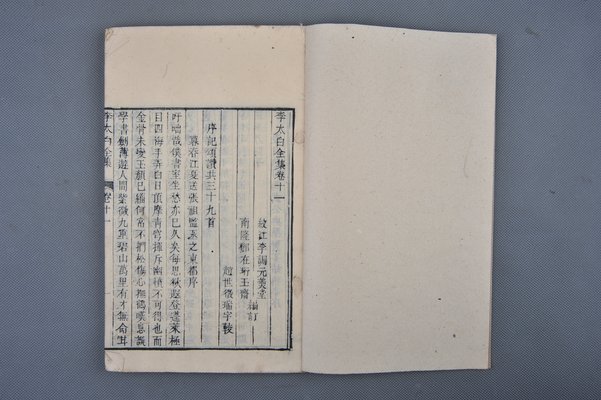 李太白全集卷十一
綿江李調元羹堂
南隆鄧在珩玉齋
編訂
序記頌讚共三十九首
暮春江夏送張祖監丞之東都序
吁咄哉僕書室坐愁亦已久矣每思欲遐登蓬萊極
目四海手弄白日頂摩青穹揮斥幽憤不可得也而
金骨未變玉顏已緇何嘗不捫松傷心撫鶴嘆息誤
學書劍薄遊人間紫微九重碧山萬里有才無命甘
李太白全集 卷十一